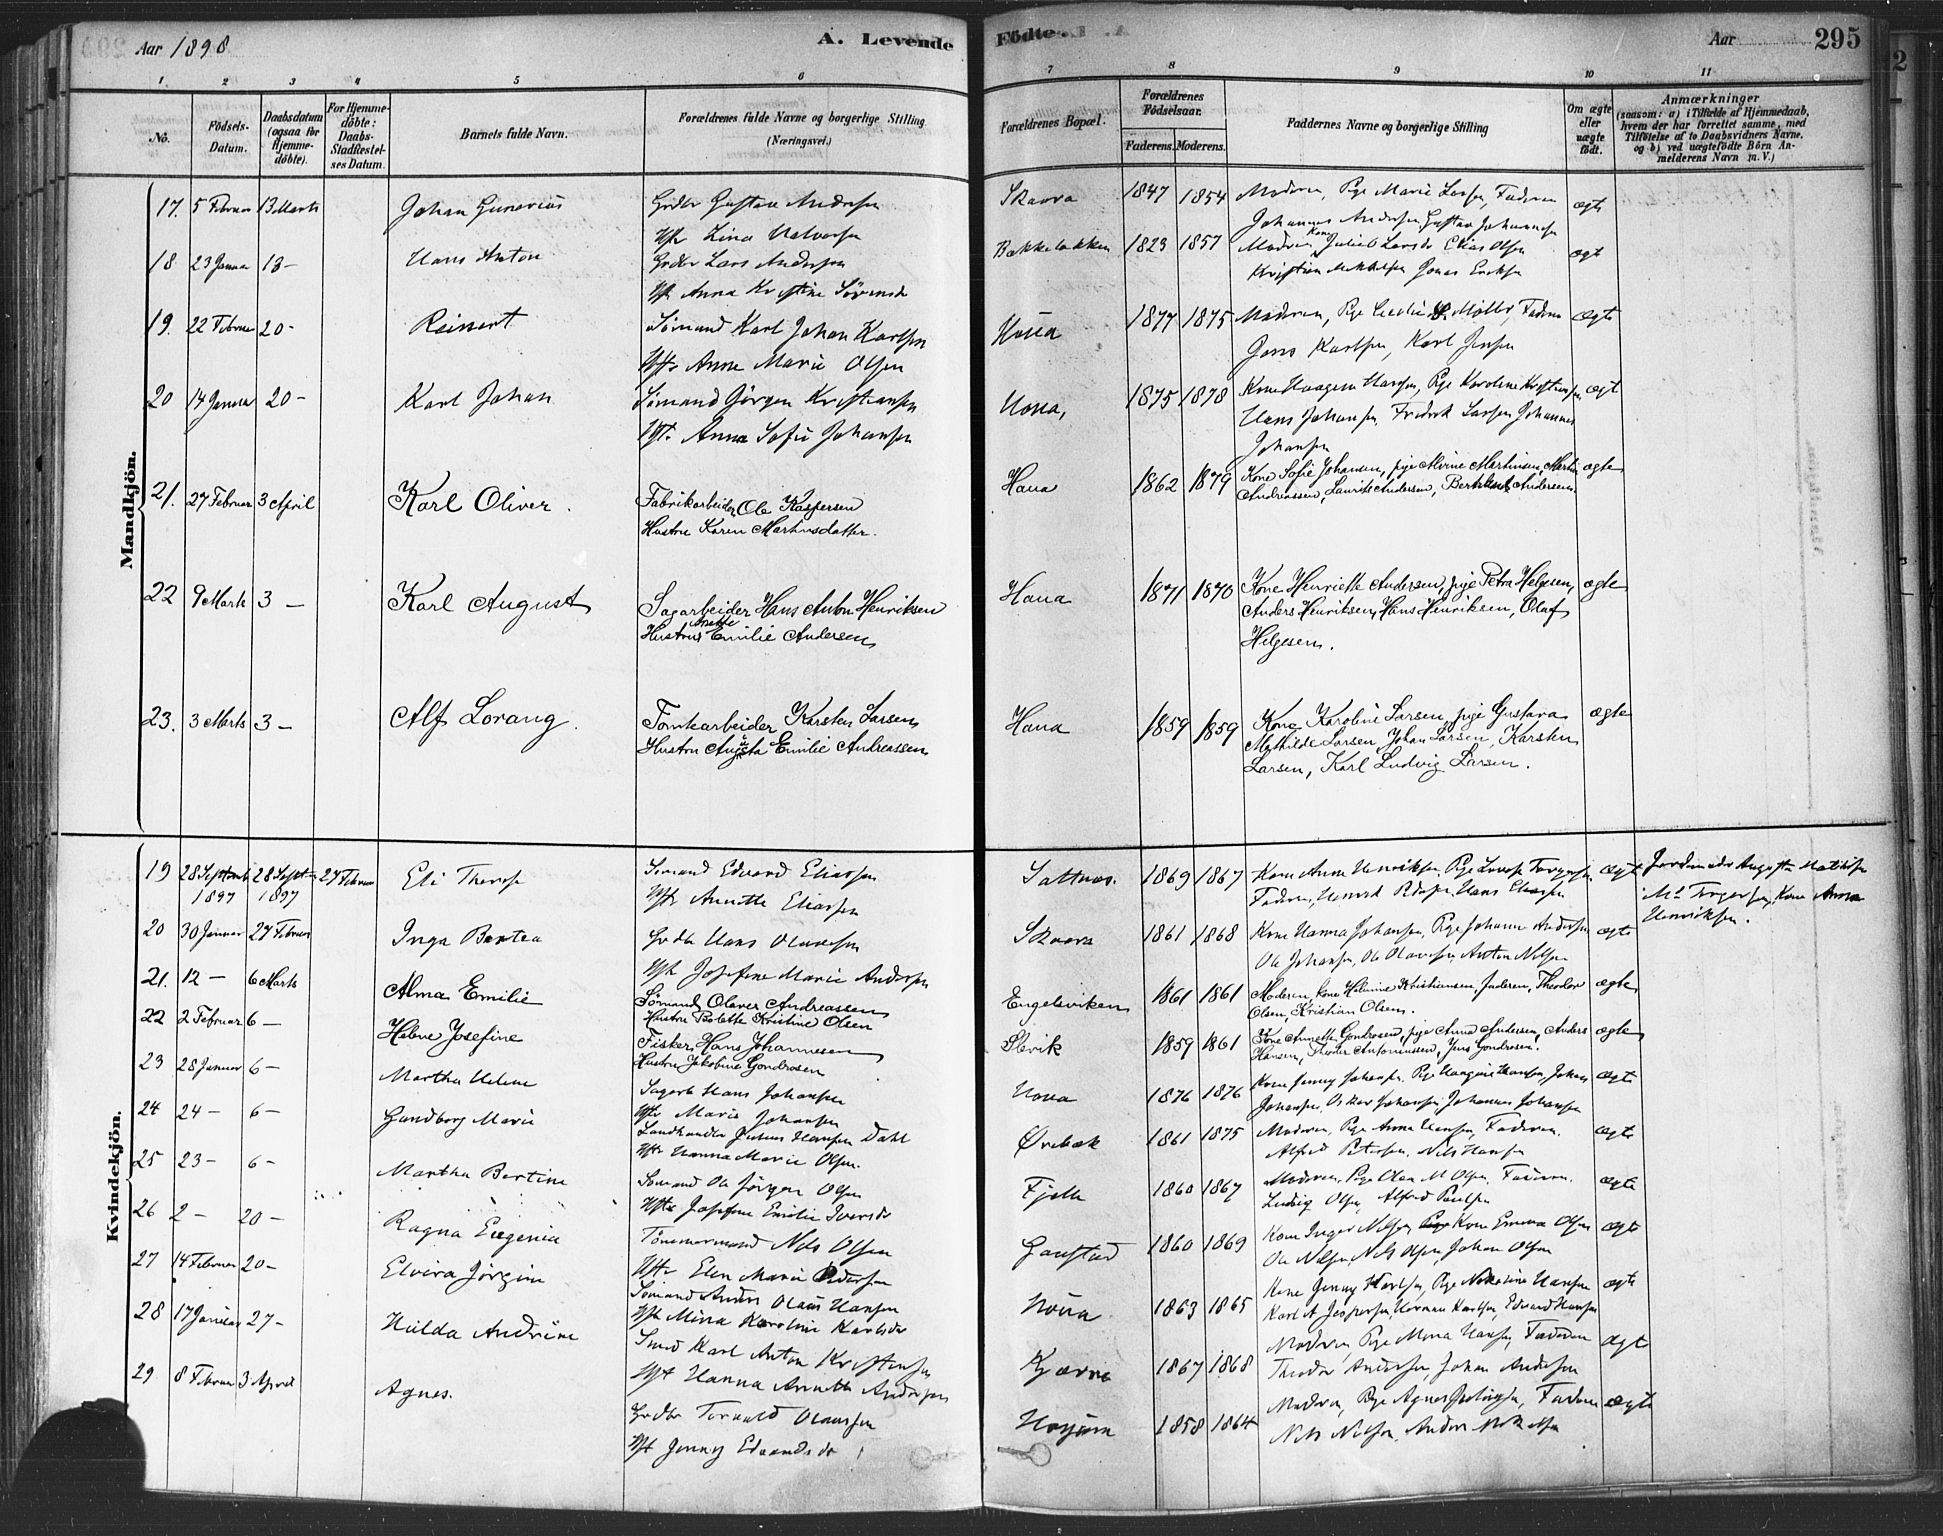 Aar 1898
A. Levende
Födte.
Aar
295
1. 2 3 4 5 6
7 8 9 10 11
No.
Födsels-Datum.
Daabsdatum (ogsaa for Hjemme-döbte).
For Hjemme-döbte: Daabs-Stadfestel-ses Datum.
Barnets fulde Navn.
Forældrenes fulde Navne og borgerlige Stilling (Næringsvei.)
Forældrenes Bopæl.
Forældrenes Födselsaar.
Faderens. Moderens.
Faddernes Navne og borgerlige Stilling
Om ægte eller uægte födt.
Anmærkninger
(saasom: a) i Tilfælde af Hjemmedaab, hvem der har forrettet samme, med Tilföielse af to Daabsvidners Navne, og b) ved uægtefödte Börn Anmelderens Navn m. V.)
Mandkjön.
17. 5 Februar 13 Marts Johan Gunerius Grdbr Gustav Andersen Skaara 1847 1854 Moderen, Pige Marie Larsen, Faderen ægte
Johannes Andersen, Gustav Johannesen
18 23 Januar 13 - Hans Anton Grdbr Lars Andersen 1823 1857 Moderen, Elias Olsen ægt
Hst Anna Kristine Sørensdr
19. 22 Februar 20 - Reinert Sømand Karl Johan Karlsen Houa 1877 1875 Moderen, Faderen ægte
Hst Anne Marie Olsen Jens Karlsen, Karl Jensen
20 14 Januar 20 - Karl Johan Sømand Jörgen Kristiansen Houa, 1875 1878 Kone Haagine Hansen, Pige Karoline Kristiansen, ægt
Hst. Anna Sofie Johansen Hans Johansen, Fredrik Larsen, Johannes
Johansen
21. 27 Februar 3 April Karl Oliver. Fabrikarbeider Ole Kaspersen Haua 1862 1879 Kone Sofie Johansen, pige Alvine Martinsen, Martin ægte
Hustru Karen Martinsdatter. Andreassen, Laurits Andersen, Bernhard Andersen.
22 9 Marts 3 - Karl August Sagarbeider Hans Anton Henriksen Haua 1871 1870 Kone Henriette Andersen, pige Petra Helgesen, ægte
Hustru Anette Emilie Andersen Anders Henriksen, Hans Henriksen, Olaf
Helgesen.
23. 3 Marts 3 - Alf Lorang. Tomtearbeider Karsten Larsen Haua 1859 1859 Kone Karoline Larsen, pige Gustava ægte
Hustru Augusta Emilie Andreassen Mathilde Larsen, Johan Larsen, Karsten
Larsen, Karl Ludvig Larsen.
Kvindekjön.
19 28 Septemb 1897 28 Sept 1897 27 Februar Eli Therese Sømand Edvard Eliassen 1869 1867 Kone Anne Henriksen, ægt Jordemoder Augusta Mathilde
Hst Annette Eliassen Faderen, Henrik Pedersen, Hans Eliassen Kone Anna
Henriksen.
20 30 Januar 27 Februar Inga Bertea Grdbr Hans Olavesen Skaara 1861 1868 Kone Hanna Johansen, Pige Johanne Andersen ægte
Hst Josefine Marie Andersen Ole Johansen, Ole Olavesen, Anton Nilsen
21. 12 - 6 Marts Alma Emilie Sömand Olaver Andreassen Engelsviken 1861 1861 Moderen, kone Helmine Kristiansen, faderen, Theodor ægte
Hustru Bolette Kristine Olsen Olsen, Kristian Olsen.
22 2 Februar 6 - Helene Josefine Fisker Hans Johannesen Slevik 1859 1861 Kone Annette Gondrosen, pige Anna Andersen, Anders ægte
Hustru Jakobine Gondrosen Hansen, Theodor Antoniussen, Jens Gondrosen.
23 28 Januar 6 - Martha Helene Sagarb Hans Johansen Houa 1876 1876 Kone Jenny Johansen, Pige Haagine Hansen, Johan ægte
Hst Marie Johansen Johansen, Oskar Johansen, Johannes Johansen
24 24 - 6 - Gundborg Marie Landhandler Julius Hansen Dahl Ørebæk 1861 1875 Moderen, Pige Anna Hansen, Faderen. ægte
Hst Hanna Marie Olsen. Alfred Petersen, Nils Hansen
25 23 - 6 - Martha Bertine Sømand Ole Jörgen Olsen Fjelle 1860 1867 Moderen, Pige Olea M Olsen, Faderen. ægte
Hst Josefine Emilie Iversdr Ludvig Olsen, Alfred Paulsen
26 2 - 20 - Ragna Eugenia Tömmermand Nils Olsen Gaustad 1860 1869 Kone Inger Nilsen, Kone Emma Olsen ægt
Hst Elen Marie Pedersen Ole Nilsen, Nils Olsen, Johan Olsen
27 14 Februar 20 - Elvira Jörgine Sømand Anders Olaus Hansen Houa 1863 1865 Kone Jenny Karlsen, Pige Nikoline Hansen ægte
Hst Mina Karoline Karlsdr Karl A Jespersen, Herman Karlsen, Edvard Hansen
28 17 Januar 27 - Hilda Andrine Smed Karl Anton Kristensen Kjærre 1867 1868 Moderen, Pige Mona Hansen, Faderen ægt
Hst Hanna Annette Andersen Theodor Andersen, Johan Andersen
29. 8 Februar 3 April Agnes. Grdbr Torvald Olaussen 1858 1864 Moderen, Pige Agnes Faderen ægte
Hst Jenny Edvardsdr Nils Nilsen, Anders